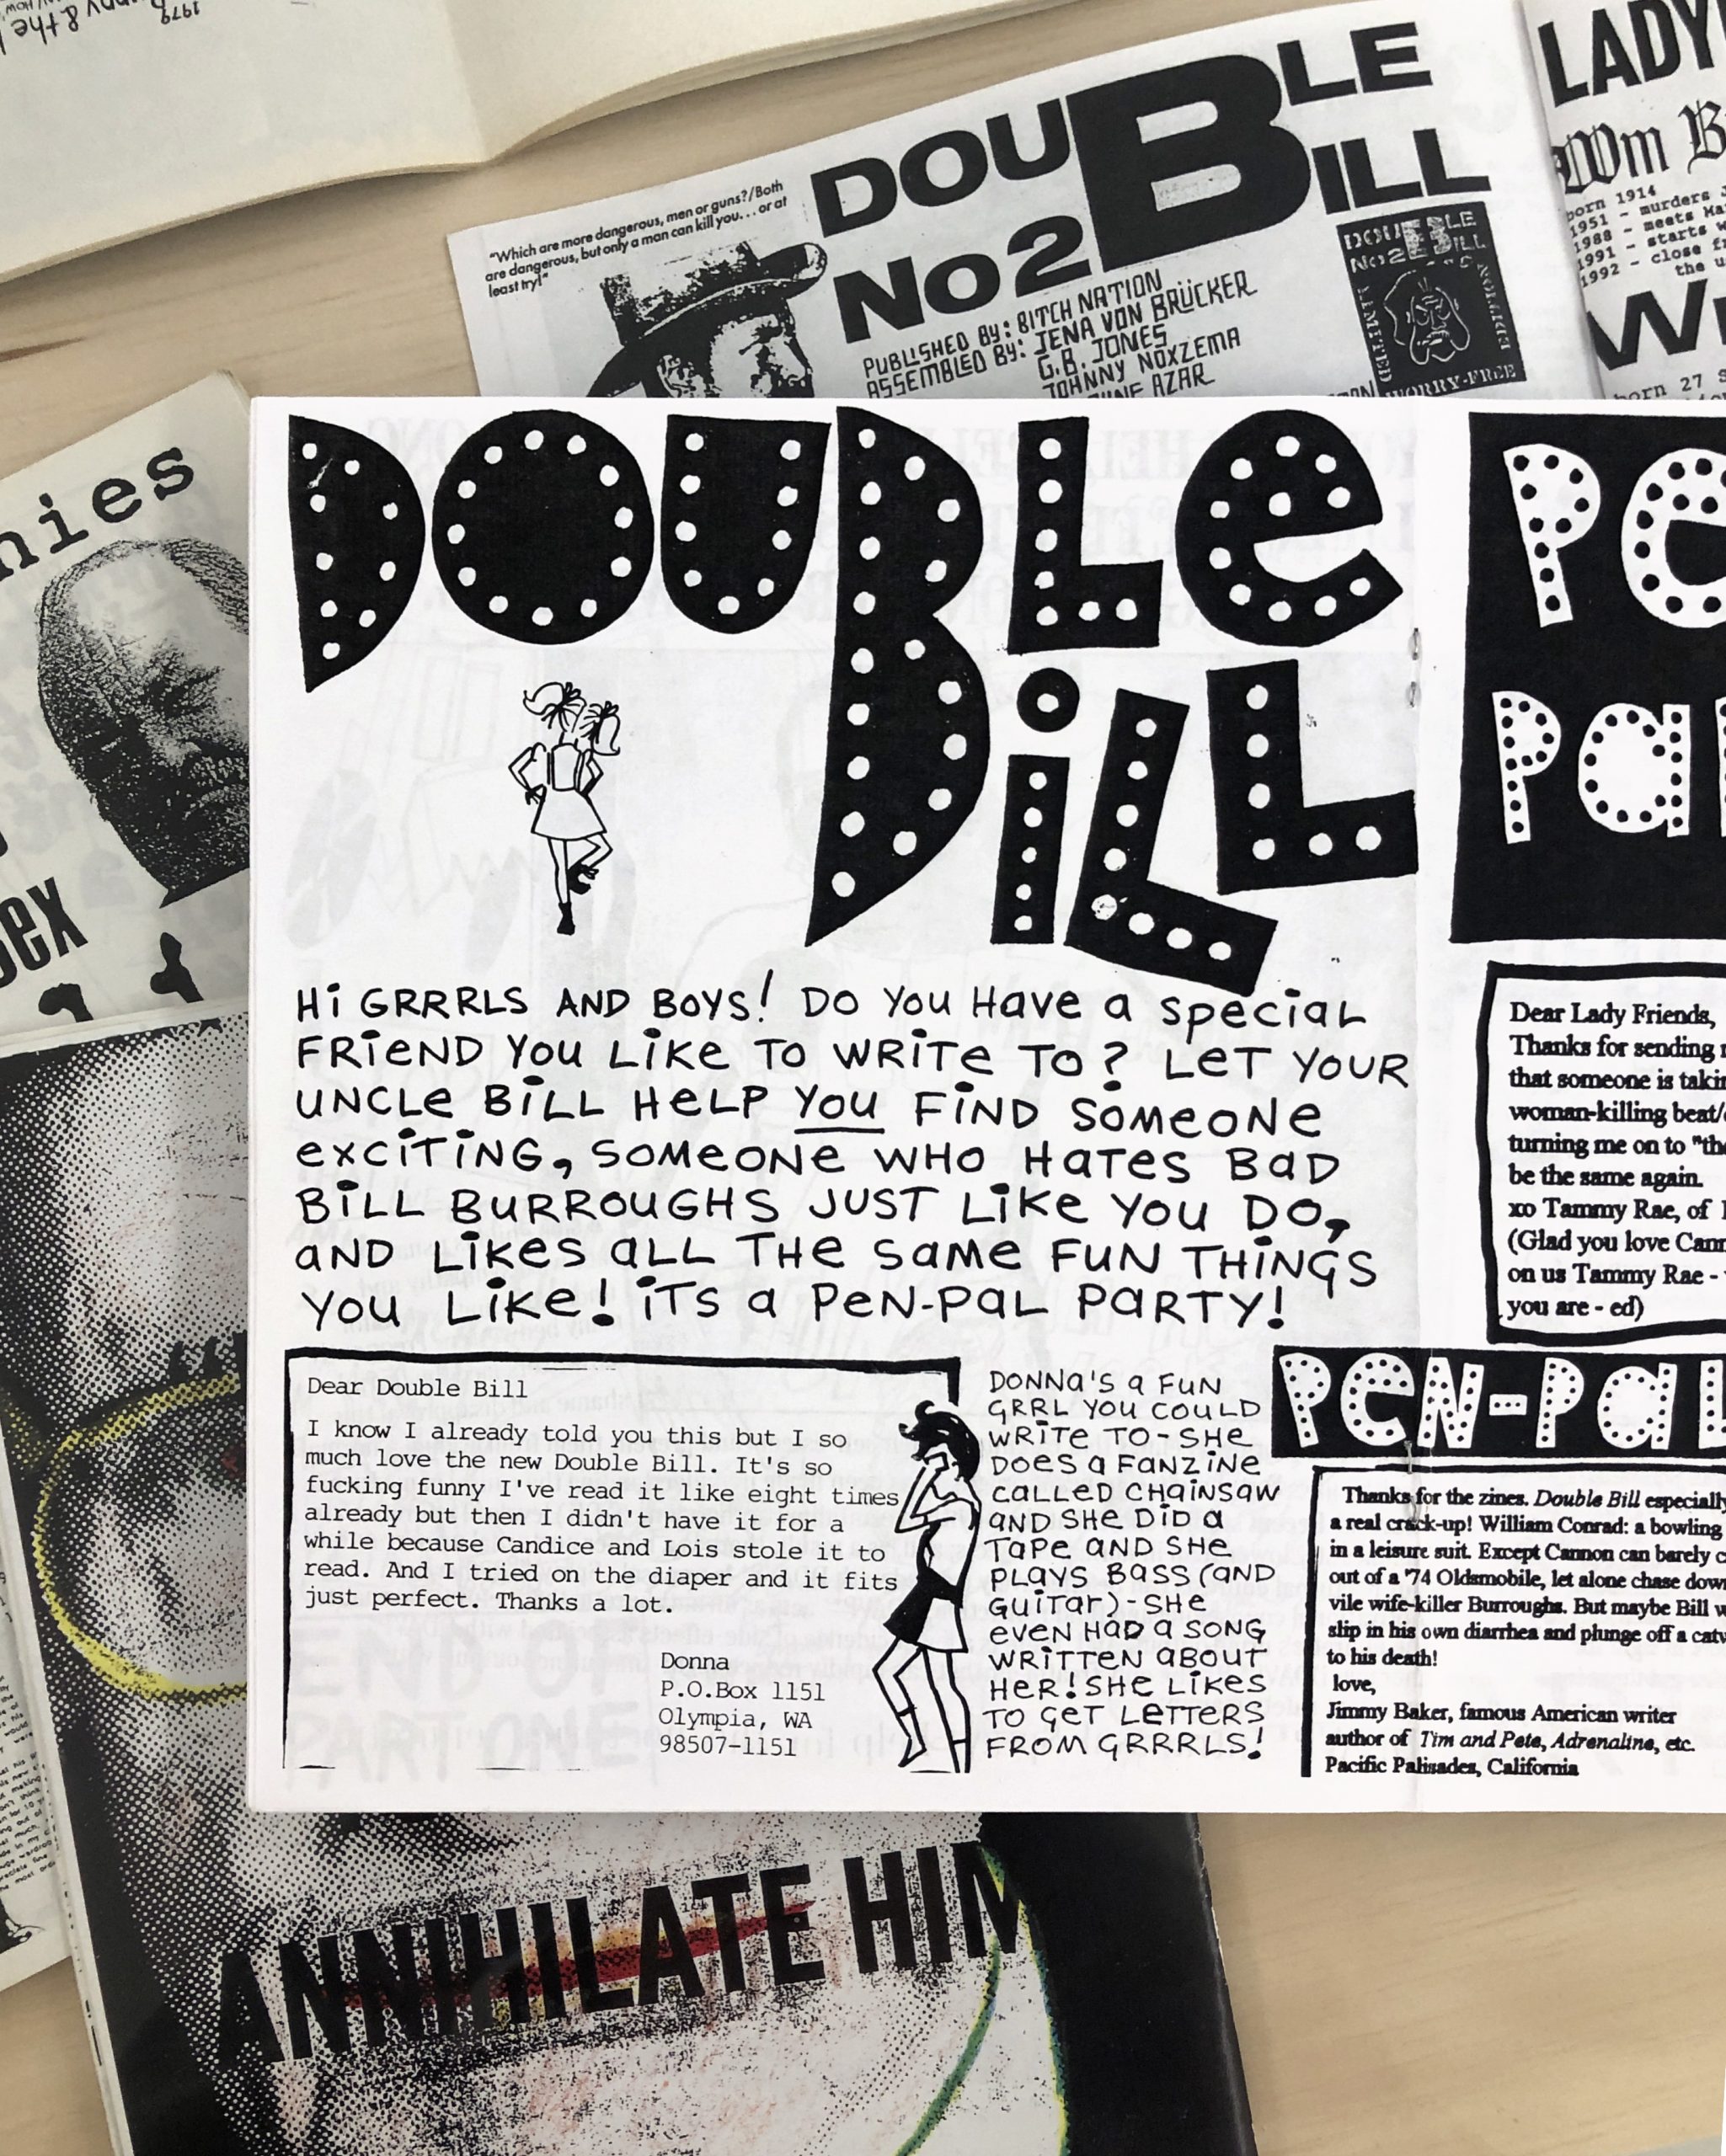 1979
"Which are more dangerous, men or guns?/Both
are dangerous, but only a man can kill you... or at
least try!"
DOUBLE
BILL
No2
PUBLISHED BY: BITCH NATION
ASSEMBLED BY: JENA VON BRÜCKER
G.B. JONES
JOHNNY NOXZEMA
AZAR
DOUBLE
BILL
No2
LIMITED
EDITION
WORRY-FREE
LADY
Wm B
born 1914
1951 - murders
1988 - meets
1991 - starts
1992 - close
the
born 27
nies
sex
DOUBLe
BiLL
Hi GRRRLS AND BOYS! DO YOU Have a special
FRieND YOU LiKe TO WRiTe TO? LeT YOUR
UNCLe BiLL HeLP YOU FiND SOMeONe
exciTiNG, SOMeONe WHO HaTeS BaD
BiLL BURROUGHS JUST LiKe YOU DO,
aND LiKeS aLL THe Same FUN THiNGS
YOU LiKe! iTS a PeN-PaL PaRTY!
Dear Double Bill
I know I already told you this but I so
much love the new Double Bill. It's so
fucking funny I've read it like eight times
already but then I didn't have it for a
while because Candice and Lois stole it to
read. And I tried on the diaper and it fits
just perfect. Thanks a lot.
Donna
P.O.Box 1151
Olympia, WA
98507-1151
DONNa'S a FUN
GRRL YOU COULD
WRiTe TO-SHe
DOeS a FaNZiNe
CaLLeD CHaiNSaW
aND SHe DiD a
TaPe aND SHe
PLaYS BaSS (aND
GUiTar)-SHe
eVeN HaD a SONG
WRiTTeN aBOUT
HeR! SHe LiKeS
TO GeT LeTTeRS
FROM GRRRLS!
Pe
Pa
Dear Lady Friends,
Thanks for sending
that someone is
woman-killing beat/
turning me on to
be the same again.
xo Tammy Rae, of
(Glad you love
on us Tammy Rae -
you are - ed)
PeN-PaL
Thanks for the zines. Double Bill especially
a real crack-up! William Conrad: a bowling
in a leisure suit. Except Cannon can barely
out of a '74 Oldsmobile, let alone chase down
vile wife-killer Burroughs. But maybe Bill
slip in his own diarrhea and plunge off a
to his death!
love,
Jimmy Baker, famous American writer
author of Tim and Pete, Adrenaline, etc.
Pacific Palisades, California
ANNIHILATE HIM